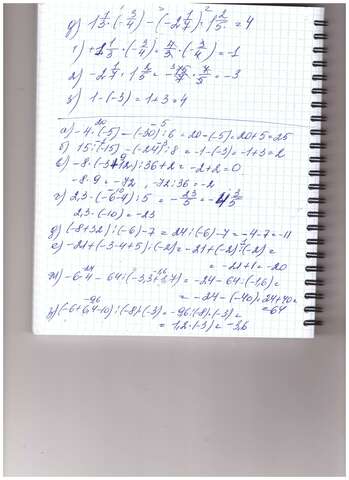 д) 1 1/3 · (-3/4) - (-2 1/7) · 1 2/5 = 4
1) +1 1/3 · (-3/4) = 4/3 · (-3/4) = -1
2) -2 1/7 · 1 2/5 = -15/7 · 7/5 = -3
3) 1-(-3) = 1+3 = 4
а) -4·(-5) - (-30) : 6 = 20-(-5) = 20+5 = 25
б) 15:(-15) - (-24) : 8 = -1-(-3) = -1+3 = 2
в) -8·(-3+12) : 36+2 = -2+2 = 0
-8·9 = -72, -72:36 = -2
г) 2,3·(-6-4) : 5 = -23/5 = -4 3/5
2,3·(-10) = -23
д) (-8+32) : (-6) - 7 = 24:(-6) - 7 = -4-7 = -11
е) -21+(-3-4+5) : (-2) = -21+(-2) : (-2) =
= -21+1 = -20
ж) -6·4 - 64 : (-3,3+1,7) = -24-64:(-1,6) =
= -24-(-40) = 24+40 =
=64
з) (-6+6,4-10) : (-8)·(-3) = -9,6:(-8)·(-3) =
= 1,2·(-3) = -3,6